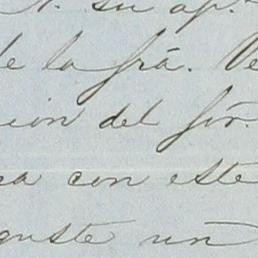 su ap.
de la frá. Ve
cion del Sór.
ca con este
guste un